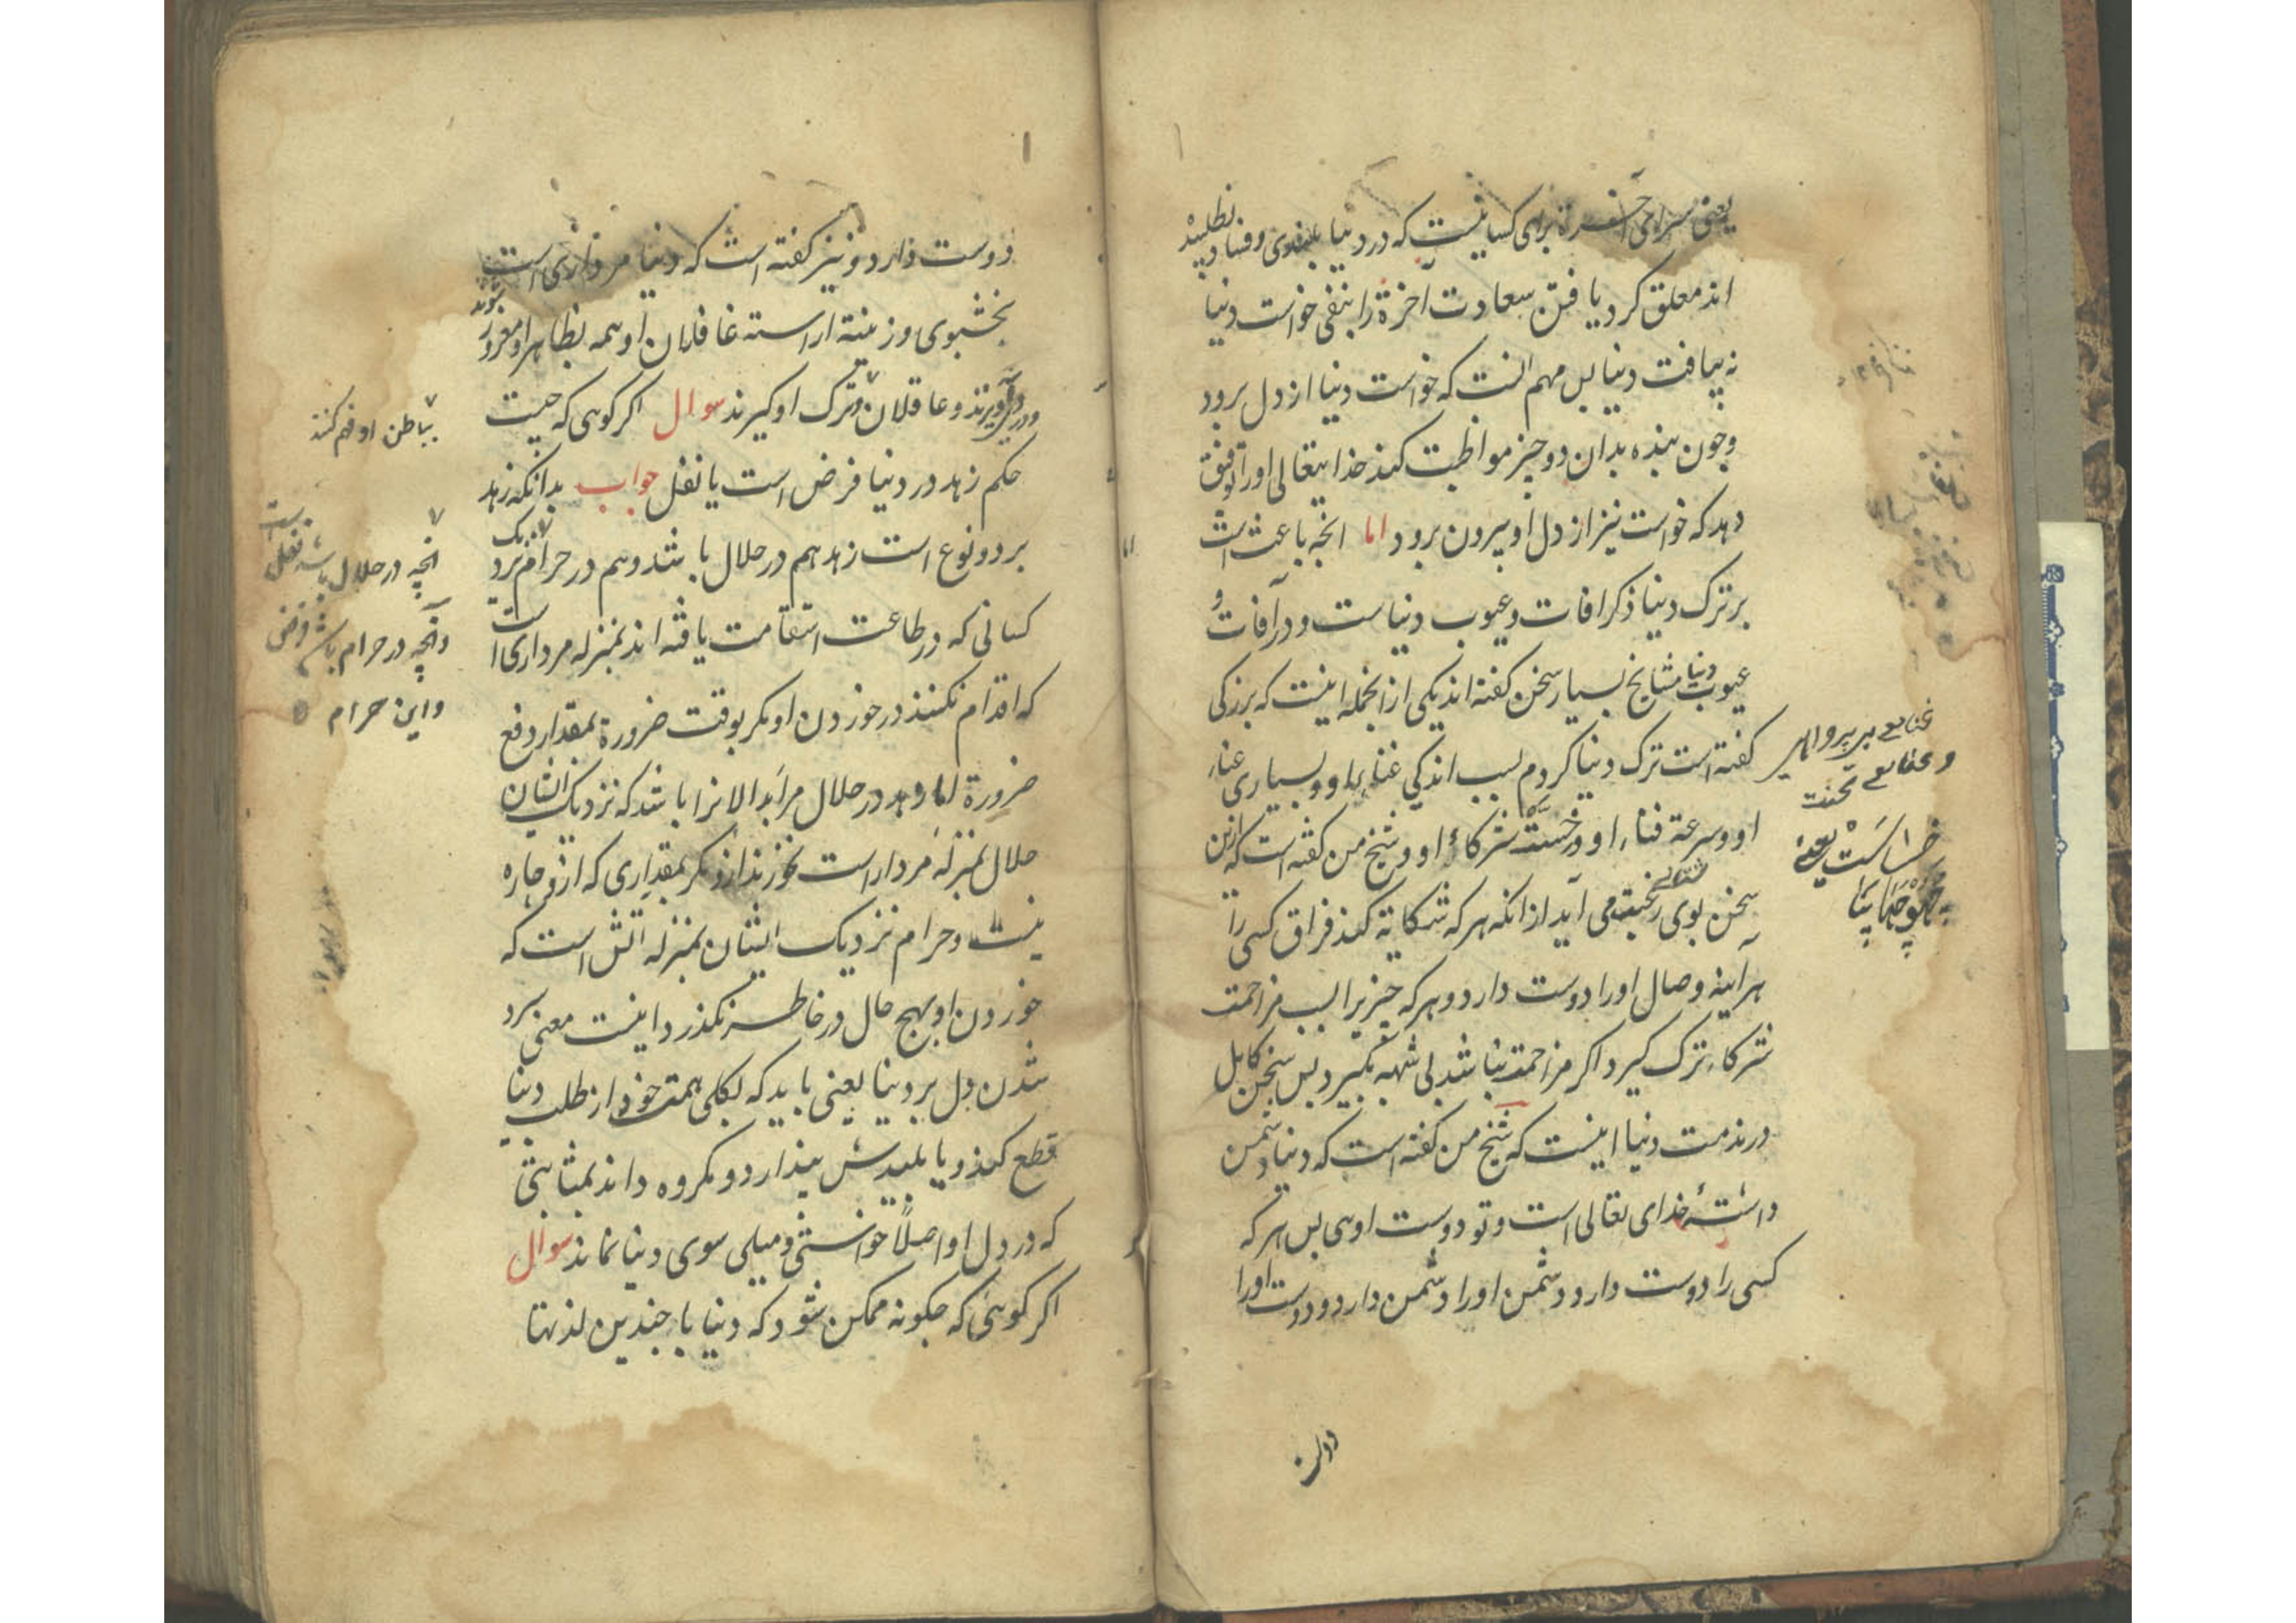 یعنی سرای آخرة برای کسانیست که در دنیا بلندی و فساد نطلبیده
اند معلق کرد یافتن سعادت آخرة را بنفی خواست دنیا
نه بیافت دنیا بس مهم انست که خواست دنیا از دل برود
و چون بنده بدان دو چیز مواظبت کند خدایتعالی او را توفیق
دهد که خواست نیز از دل او بیرون برود اما انچه باعث است
بر ترک دنیا ذکر افات و عیوب دنیاست و در آفات و
عیوب دنیا مشایخ بسیار سخن کفته اند یکی از انجمله اینست که بزرکی
کفته است ترک دنیا کردم بسبب اندکی غناء او و بسیاری عناء
او و سرعة فناء او و خست شرکاء او و شیخ من کفته است که ازین
سخن بوی رغبت می آید از انکه هر که شکایة کند فراق کسی را
هر آینه وصال او را دوست دارد و هر که چیزیرا بسبب مزاحمت
شرکاء ترک کیرد اکر مزاحمت نباشد بی شبهه بکیرد بس سخن کامل
در مذمت دنیا اینست که شیخ من کفته است که دنیا دشمن
داشتهٔ خدای تعالی است و تو دوست اوی بس هر که
کسی را دوست دارد دشمن او را دشمن دارد و دوست او را
خساست یعنے
دوست دارد و نیز کفته است که دنیا مرداری است
بخشبوی و زینته اراسته غافلان او همه بظاهر او مغرور شوند
و در وی آویزند و عاقلان ترک او کیرند سوال اکر کوی که چیست
حکم زهد در دنیا فرض است یا نفل جواب بدانکه زهد
بر دو نوع است زهد هم در حلال باشد و هم در حرام نزدیک
کسانی که در طاعت استقامت یافته اند بمنزله مرداری است
که اقدام نکنند در خوردن او مکر بوقت ضرورة بمقدار دفع
ضرورة اما زهد در حلال مر ابدالانرا باشد که نزدیک ایشان
حلال بمنزله مردار است نخورند ازو مکر بمقداری که ازو چاره
نیست و حرام نزدیک ایشان بمنزله اتش است که
خوردن او بهیچ حال در خاطر نکذرد و اینست معنی سرد
شدن دل بر دنیا یعنی باید که بکلی همت خود از طلب دنیا
قطع کند و با بلیدش بندارد و مکروه داند بمثابتی
که در دل او اصلاً خواستی و میلی سوی دنیا نماند سوال
اکر کوئی که چکونه ممکن شود که دنیا با چندین لذتها
بباطن او فهم کنند
انچه در حلال باشد نفل است
و آنچه در حرام باشد فرض
و این حرام